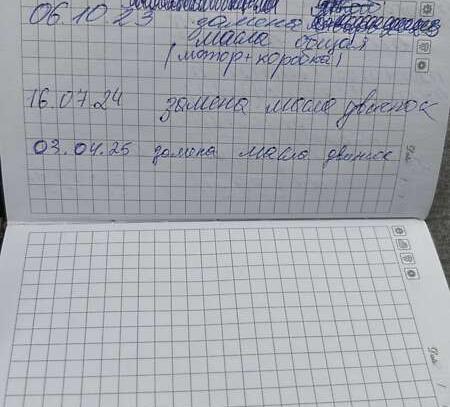 06.10.23 замена
масла общая
(мотор+коробка)
16.07.24 замена масла движок
03.04.25 замена масла движок